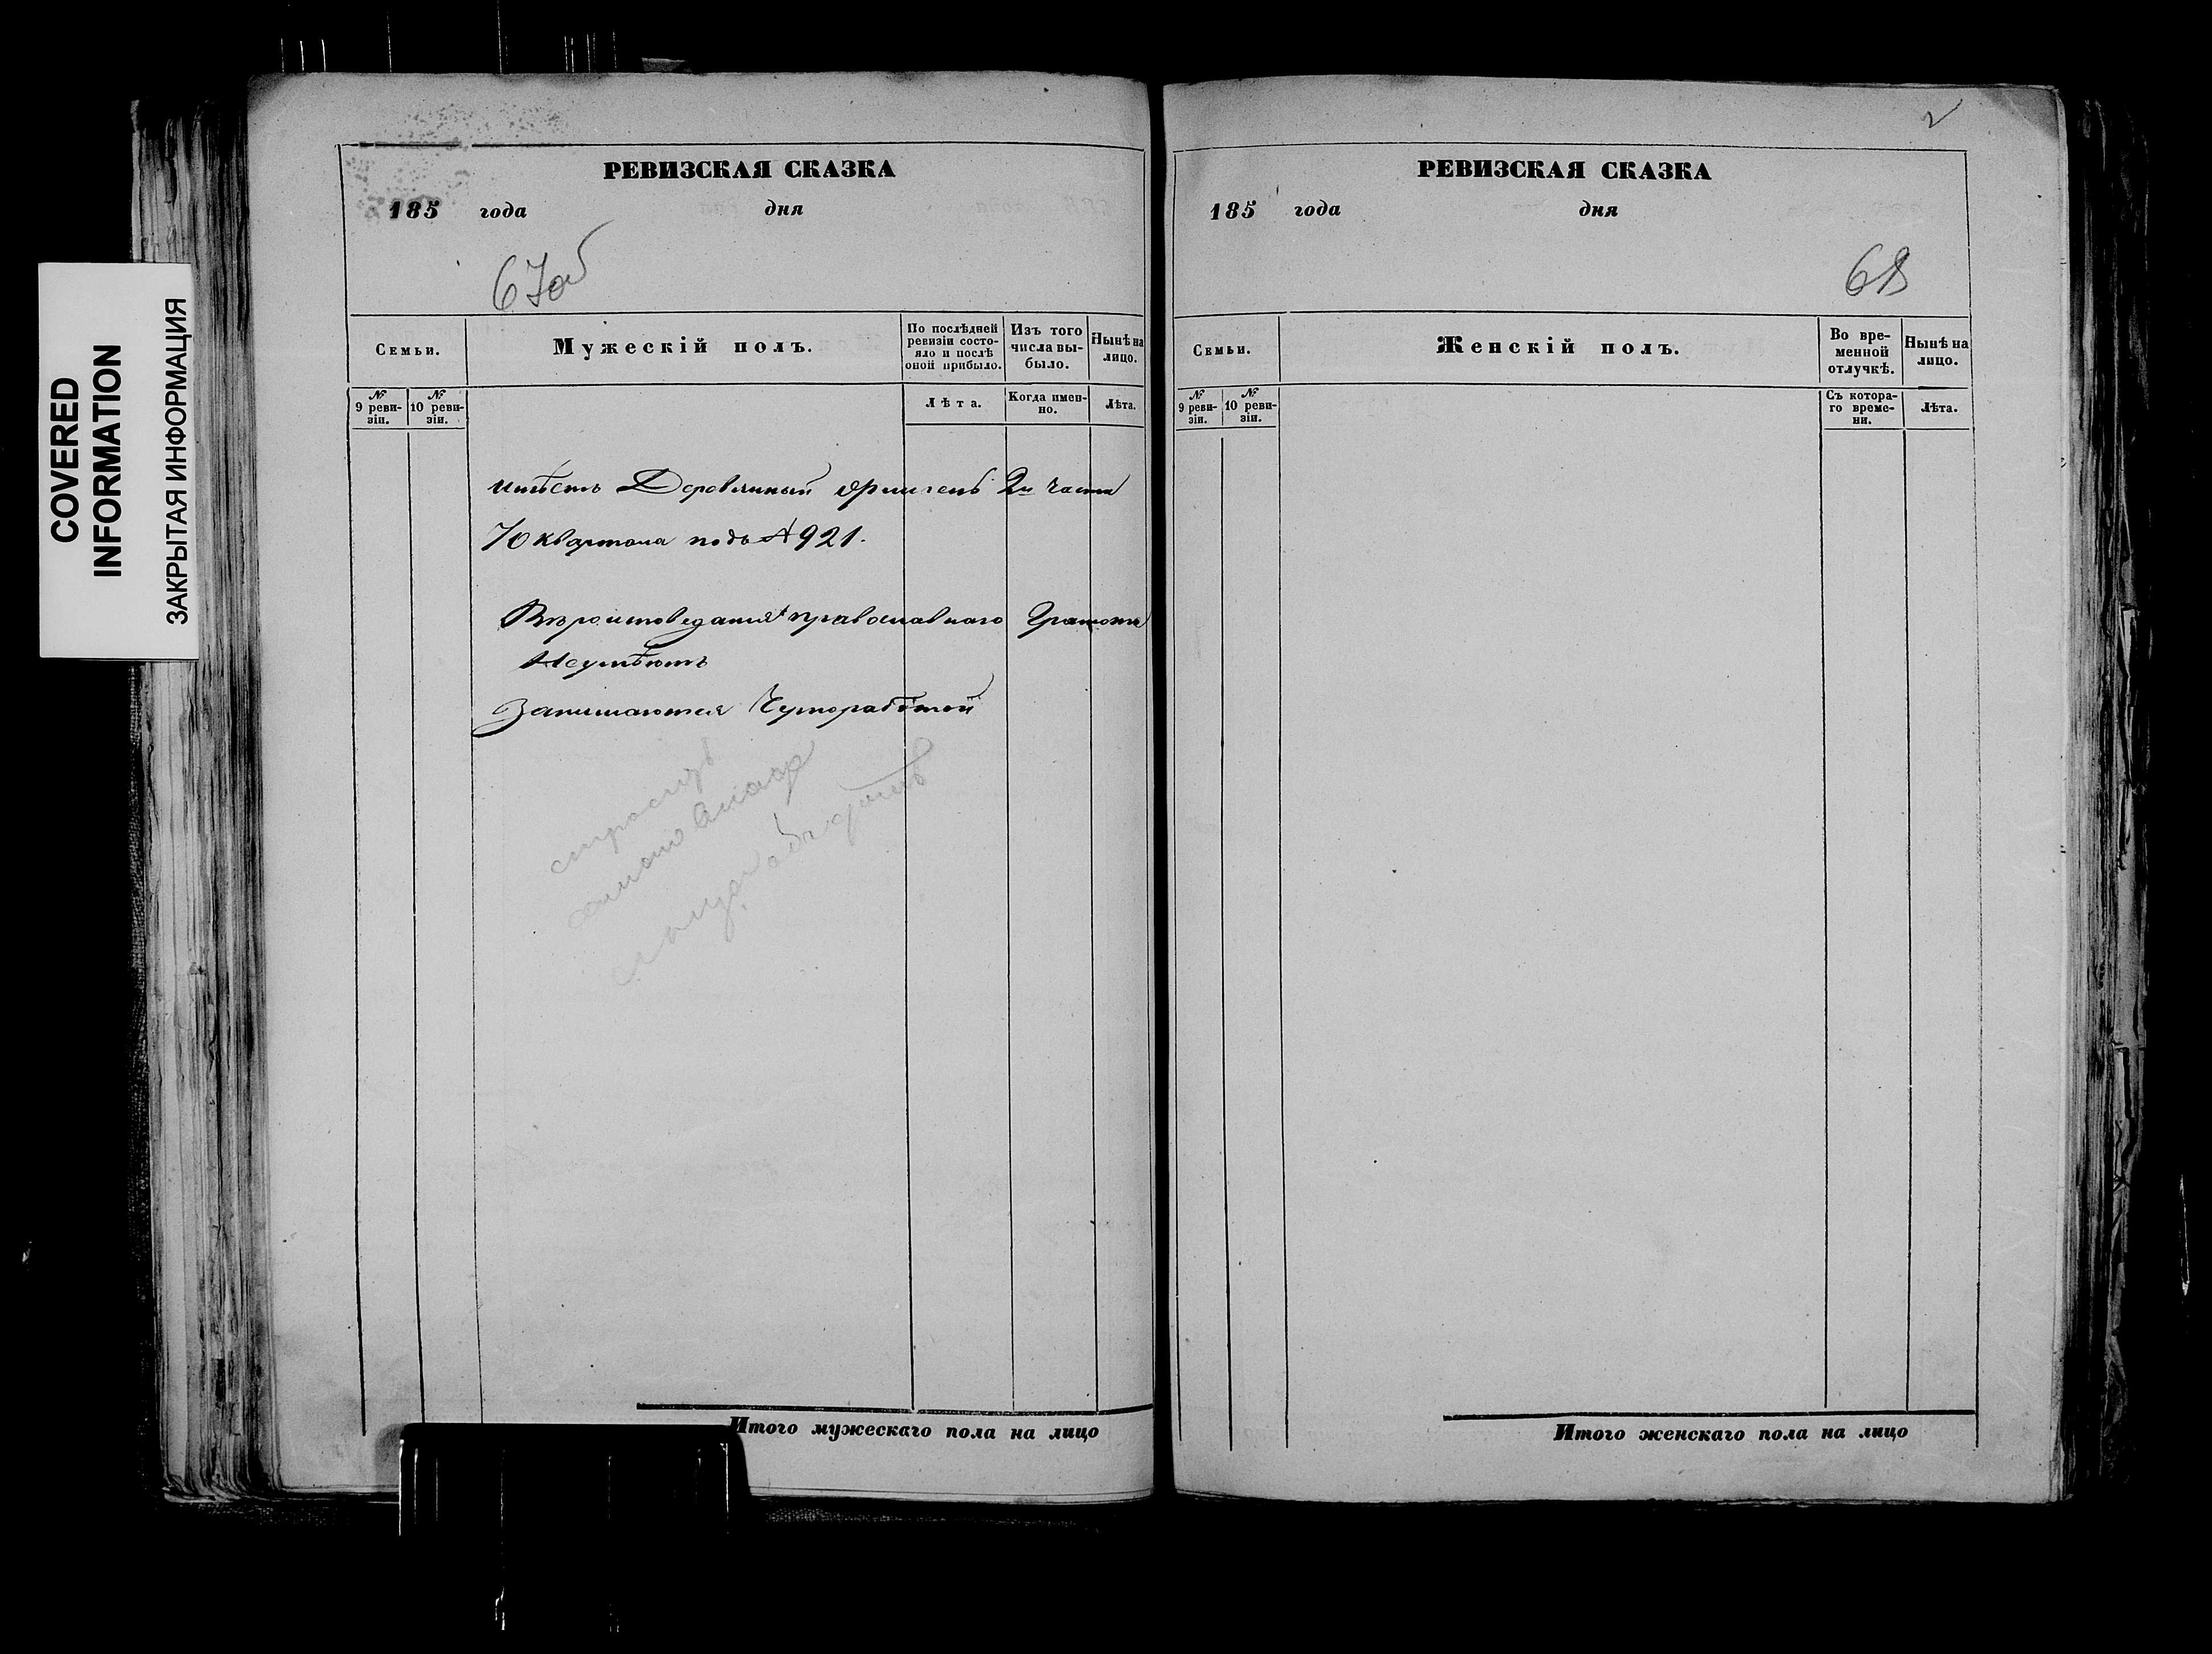 COVERED
INFORMATION
ЗАКРЫТАЯ ИНФОРМАЦИЯ
РЕВИЗСКАЯ СКАЗКА
185 года дня
67об
Семьи.
Мужескій полъ.
По послѣдней
ревизіи состо-
яло и послѣ
оной прибыло.
Изъ того
числа вы-
было.
Нынѣ на
лицо.
№
9 реви-
зіи.
№
10 реви-
зіи.
Лѣта.
Когда имен-
но.
Лѣта.
имѣетъ Деревянный 2й части
70 квартала подъ № 921.
Вѣроисповеданія православнаго Грамотѣ
Неумѣютъ
Занимаются Чернорабтой
Итого мужескаго пола на лицо
2
РЕВИЗСКАЯ СКАЗКА
185 года дня
68
Семьи.
Женскій полъ.
Во вре-
менной
отлучкѣ.
Нынѣ на
лицо.
№
9 реви-
зіи.
№
10 реви-
зіи.
Съ котора-
го време-
ни.
Лѣта.
Итого женскаго пола на лицо